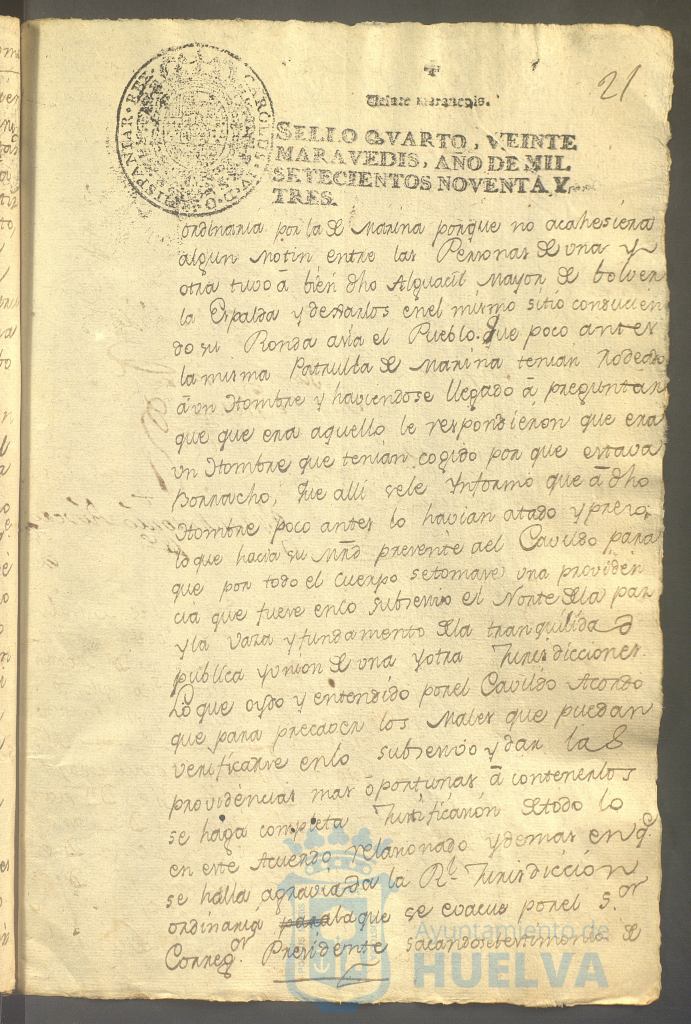 21
Veinte maravedis.
SELLO QVARTO, VEINTE
MARAVEDIS, AÑO DE MIL
SETECIENTOS NOVENTA Y
TRES.
CAROLUS IV D G HISPANIAR REX
ordinaria por la de Marina porque no acahesiera
algun Motin entre las Personas de una y
otra tuvo â bien dho Alguacil Mayor de bolver
la Espalda y dexarlos enel mismo sitio conducien
do su Ronda asia el Pueblo. Que poco antes
la misma Patrulla de Marina tenian Rodeado
â un Hombre y haviendose llegado â preguntar
que que era aquello le respondieron que era
un Hombre que tenian cogido por que estava
Borracho, que alli sele Ynformó que â dho
Hombre poco antes lo havian atado y preso,
lo que hacia su Mrd presente ael Cavildo para
que por todo el Cuerpo setomase una providen
cia que fuese enlo subsesivo el Norte dela paz
y la vaza y fundamento dela tranquilidad
publica y union de una y otra Jurisdicciones.
Lo que oydo y entendido porel Cavildo Acordó
que para precaver los Males que puedan
verificarse enlo subsesivo y dar las
providencias mas oportunas â contenerlos
se haga completa Justificasion detodo lo
en este Acuerdo relasionado y demas en q.e
se halla agraviada la Rl. Jurisdiccion
ordinaria para la que se evacue porel S.or
Correg.or Presidente sacandose testimonio de
Ayuntamiento de
HUELVA